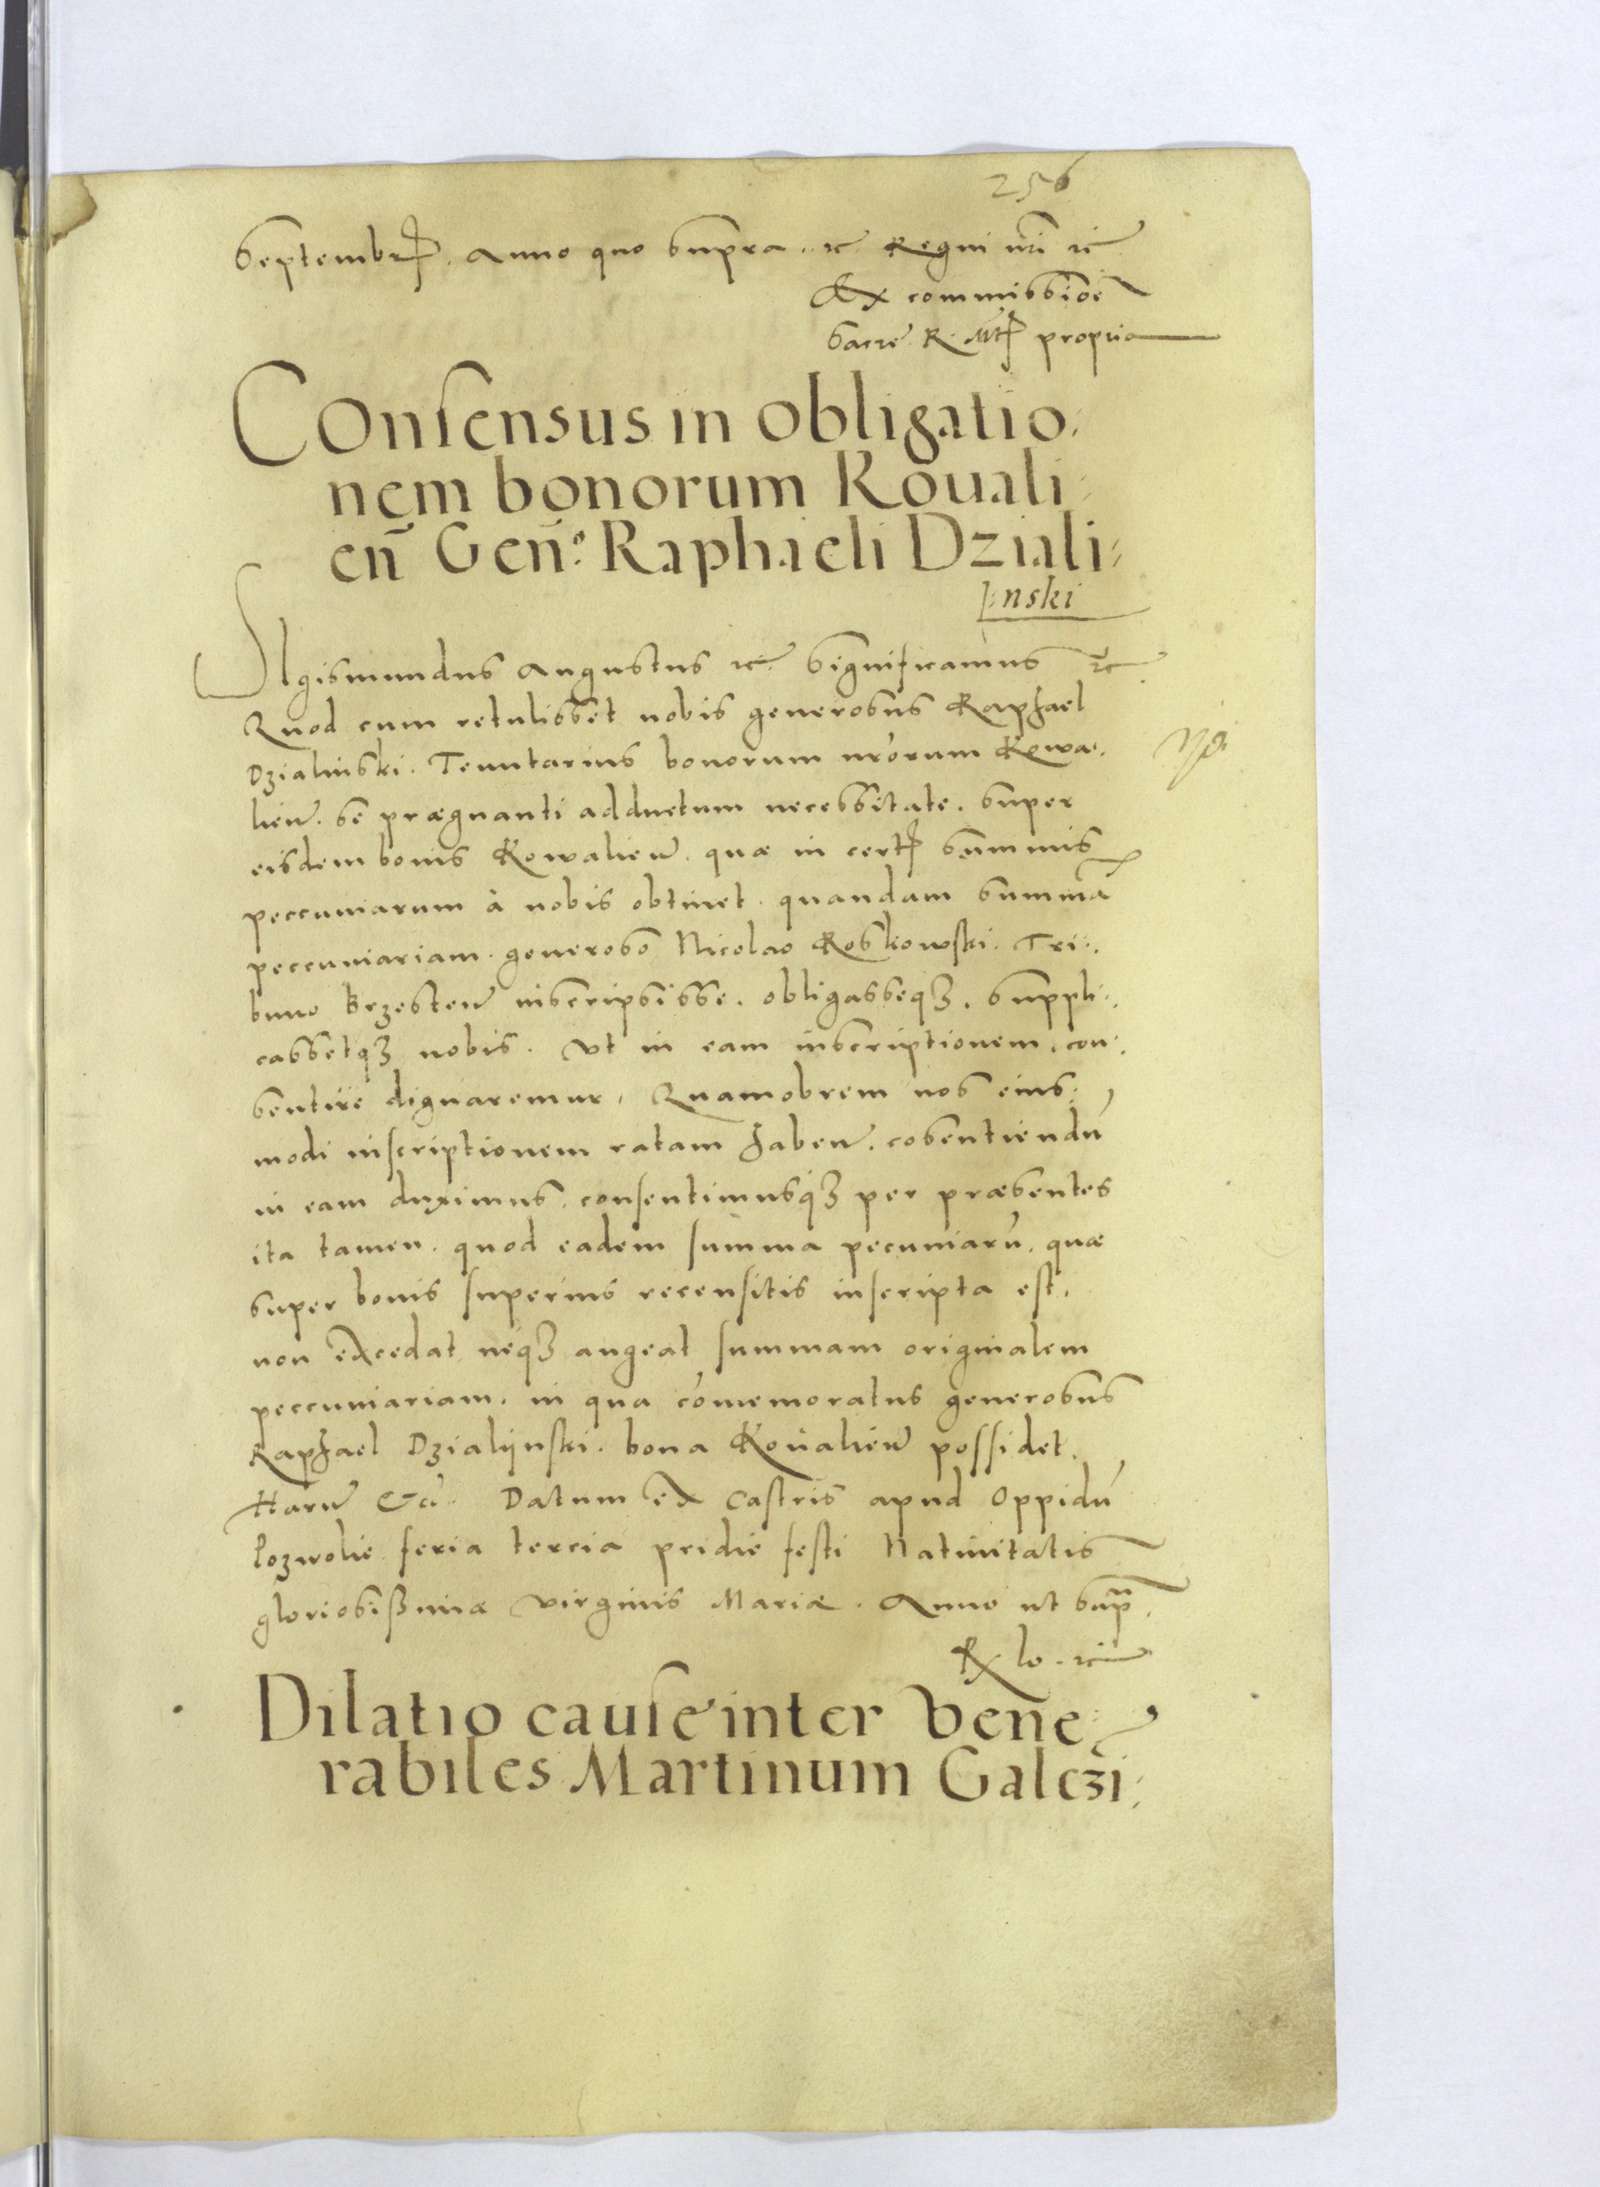 256
Septembris. Anno quo supra. &c Regni nri &c
Ex commissioe
sacre R. Mtis propria
COnsensus in obligatio:
nem bonorum Kouali:
en̄ Gen̄o: Raphaeli Dziali:
nski
SIgismundus Augustus &c Significamus &c
Quod cum retulisset nobis generosus Raphael
Dzialinski. Tenutarius bonorum nrorum Kowa:
lien̄. se prægnanti adductum necessitate. super
eisdem bonis Kowalien̄. quæ in certis summis
peccuniarum à nobis obtinet. quandam summā
peccuniariam. generoso Nicolao Koskowski. Tri:
buno Brzesten̄ inscripsisse. obligasseqȝ. suppli:
cassetqȝ nobis. Vt in eam inscriptionem. con:
sentire dignaremur. Quamobrem nos eius:
modi inscriptionem ratam haben̄. cosentiendū
in eam duximus. consentimusqȝ per præsentes
ita tamen. quod eadem summa pecuniarū. quæ
super bonis superius recensitis inscripta est.
non excedat neqȝ augeat summam originalem
peccuniariam. in qua cōmemoratus generosus
Raphael Dzialijnski. bona Koualien̄ possidet.
Harū &c. Datum ex Castris apud Oppidū
Pozwolie feria tercia pridie festi Natiuitatis
gloriosissimæ virginis Mariæ. Anno ut sup̄.
Rx lo. &c
Dilatio cause inter Vene:
rabiles Martinum Galczi: